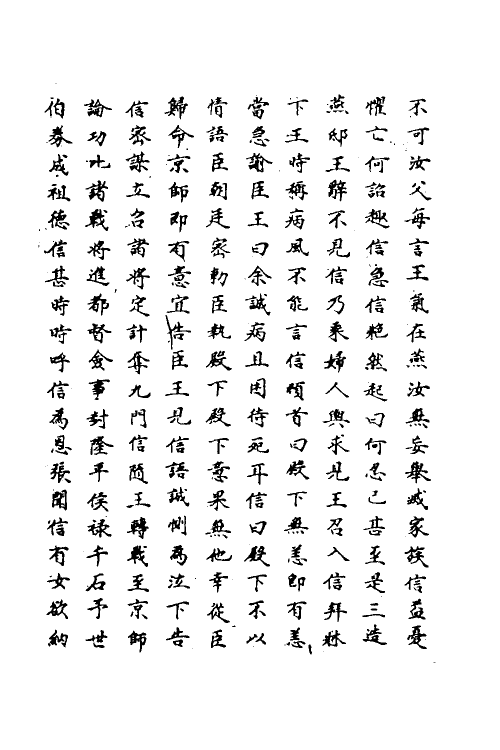 不可汝父每言王氣在燕汝無妄舉滅家族信益憂
懼亡何詔趣信急信艴然起曰何忍已甚至是三造
燕邸王辭不見信乃乘婦人輿求見王召入信拜牀
下王時稱病風不能言信頓首曰殿下無恙即有恙
當急諭臣王曰余誠病且困待死耳信曰殿下不以
情語臣朝廷密勅臣執殿下殿下意果無他幸從臣
歸命京師即有意宜告臣王見信語誠惻為泣下告
信密謀立召諸將定計奪九門信隨王轉戰至京師
論功比諸戰將進都督僉事封隆平侯祿千石予世
伯券成祖德信甚時時呼信為恩張聞信有女欲納